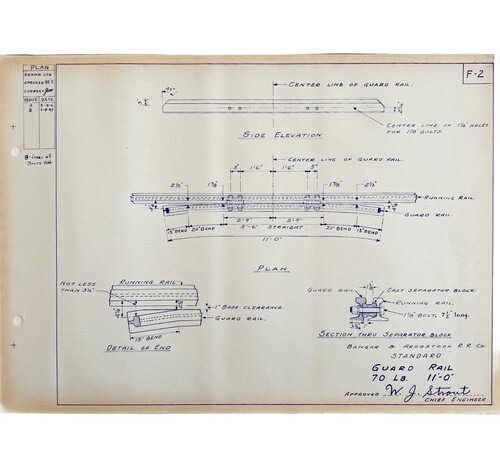 PLAN
DRAWN
CHECKED
CORRECT
ISSUE DATE
A
B
B-
F-2
45°
CENTER LINE OF GUARD RAIL.
CENTER LINE OF 1¼" HOLES
FOR 1⅛" BOLTS.
SIDE ELEVATION
CENTER LINE OF GUARD RAIL.
5" 1'-6" 1'-6" 5"
2½" 1⅞" 1⅞" 2½"
RUNNING RAIL
GUARD RAIL.
2'-9" 2'-9"
15" BEND 20" BEND 5'-6" STRAIGHT 20" BEND 15" BEND
11'-0"
PLAN
NOT LESS
THAN 3½"
RUNNING RAIL
1" BASE CLEARANCE
GUARD RAIL.
15" BEND
DETAIL OF END
GUARD RAIL.
CAST SEPARATOR BLOCK.
RUNNING RAIL.
BOLT, 7½" long.
SECTION THRU SEPARATOR BLOCK
BANGOR & AROOSTOOK R.R. CO.
STANDARD
GUARD RAIL
70 LB. 11'-0"
APPROVED W. J. Strout
CHIEF ENGINEER